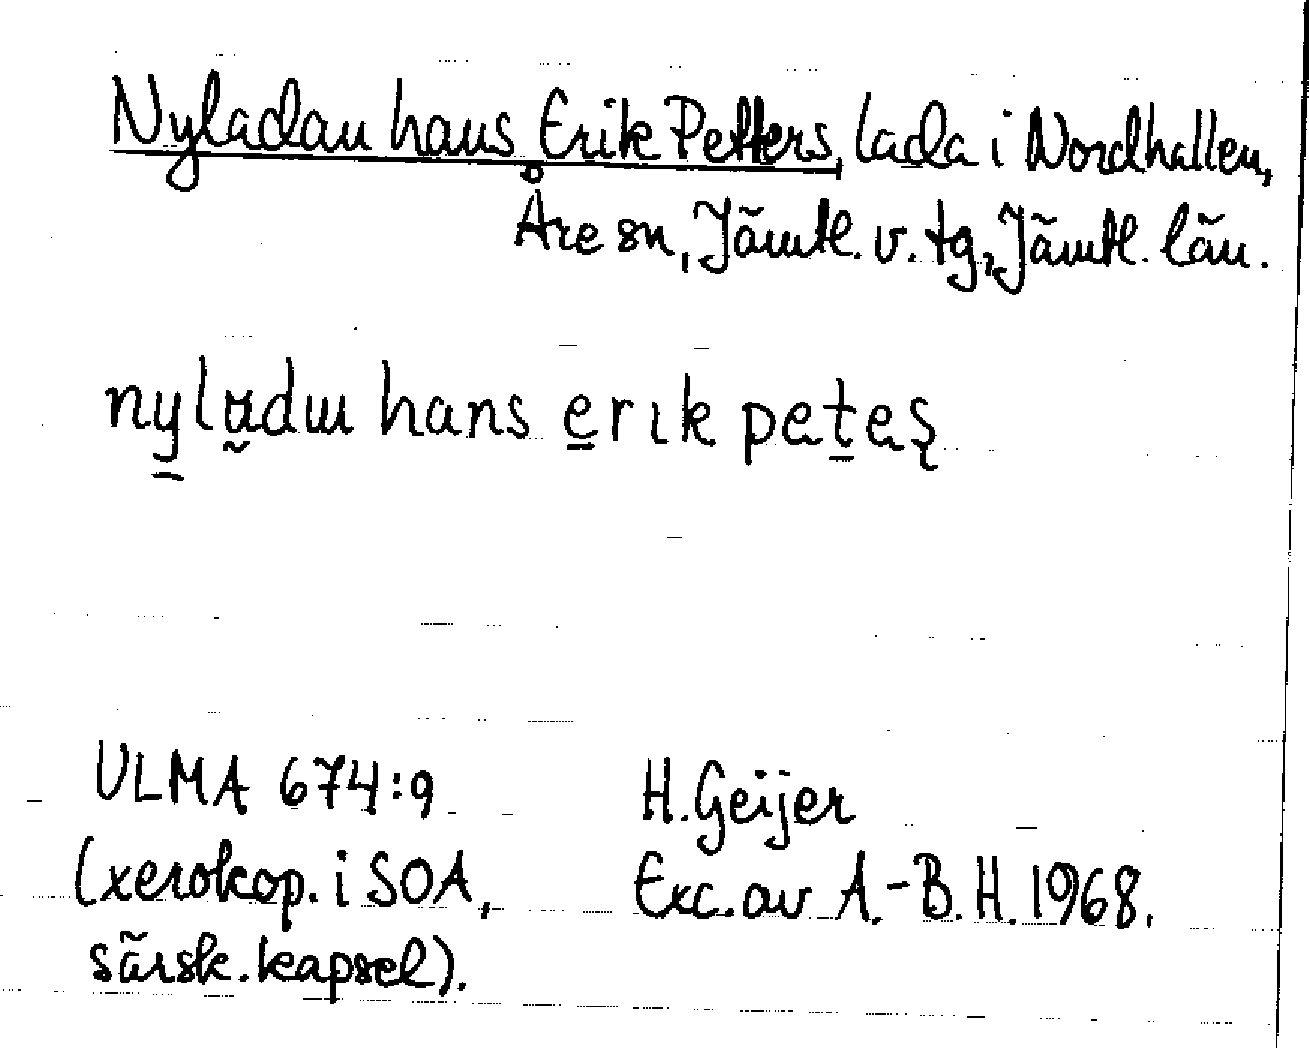 Nyladan hans Erik Petters, lada i Nordhallen,
Åre sn, Jämtl. v. tg, Jämtl. län.
hans erik
ULMA 674:9
H. Geijer
(xerokop. i SOA,
Exc. av A.-B. H. 1968.
särsk. kapsel).